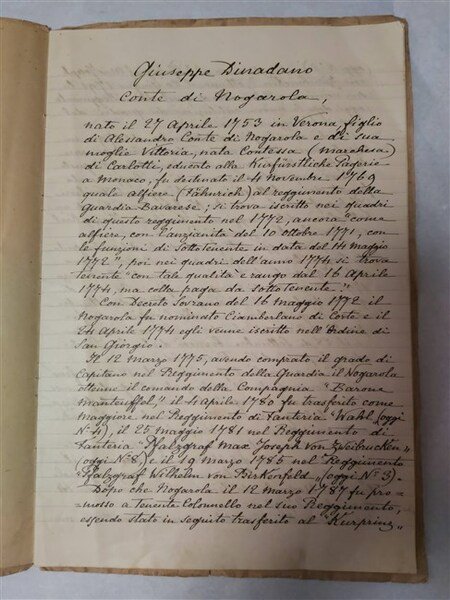 Giuseppe Dinadano
Conte di Nogarola,
nato il 27 Aprile 1753 in Verona, figlio
di Alessandro Conte di Nogarola e di sua
moglie Vittoria, nata Contessa (Marchesa)
di Carlotti, educato alla Kurfürstliche Pagerie
a Monaco, fu destinato il 4 novembre 1769
quale alfiere (Fähnrich) al reggimento della
Guardia Bavarese; si trova iscritto nei quadri
di questo reggimento nel 1772, ancora "come
alfiere, con l'anzianità del 10 ottobre 1771, con
le funzioni di Sottotenente in data del 14 maggio
1772", poi nei quadri dell'anno 1774 si trova
tenente "con tale qualità e rango dal 16 Aprile
1774, ma colla paga da Sottotenente."
Con Decreto Sovrano del 16 maggio 1772 il
Nogarola fu nominato Ciamberlano di Corte e il
24 Aprile 1774 egli venne iscritto nell'Ordine di
San Giorgio.
Il 12 Marzo 1775, avendo comprato il grado di
Capitano nel Reggimento della Guardia il Nogarola
ottenne il comando della Compagnia "Barone
Manteuffel," il 4 Aprile 1780 fu trasferto come
Maggiore nel Reggimento di Fanteria "Wahl (oggi
N° 4), il 25 Maggio 1781 nel Reggimento di
Fanteria "Pfalzgraf Max Joseph von Zweibrücken„
(oggi N° 8) e il 19 Marzo 1785 nel Reggimento
"Pfalzgraf Wilhelm von Birkenfeld„ (oggi N° 3).
Dopo che Nogarola il 12 Marzo 1787 fu pro=
=mosso a Tenente Colonnello nel suo Reggimento,
essendo stato in seguito trasferito al "Kurprinz„